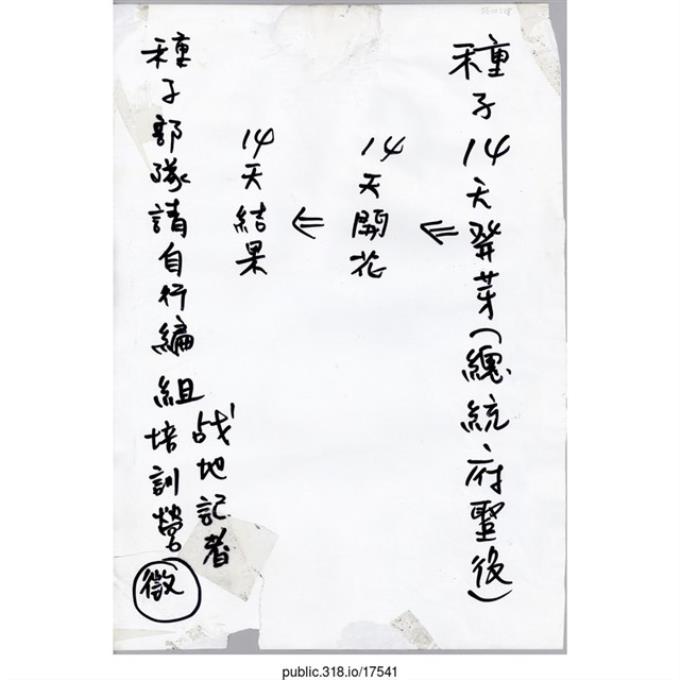 種子14天發芽(總統府聖後)
⇐
14天開花
⇐
14天結果
战地記者
種子部隊請自行編組培訓營 徵
public.318.io/17541